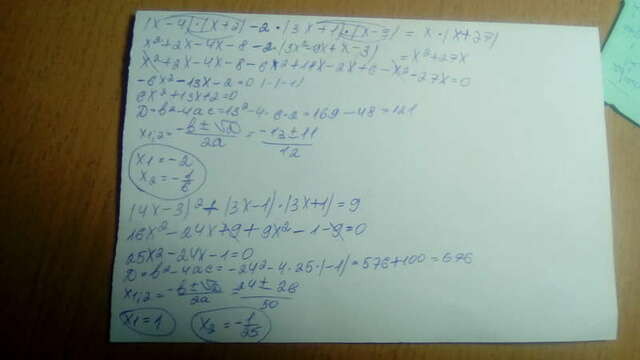 (x-4)·(x+2)-2·(3x+1)·(x-3) = x·(x+27)
x²+2x-4x-8-2·(3x²-9x+x-3) = x²+27x
x²+2x-4x-8-6x²+18x-2x+6-x²-27x=0
-6x²-13x-2=0 |·(-1)
6x²+13x+2=0
D=b²-4ac=13²-4·6·2=169-48=121
x1,2=-b±√D/2a = -13±11/12
x1=-2
x2=-1/6
(4x-3)²+(3x-1)·(3x+1)=9
16x²-24x+9+9x²-1-9=0
25x²-24x-1=0
D=b²-4ac=-24²-4·25·(-1)=576+100=676
x1,2=-b±√D/2a = 24±26/50
x1=1 x2=-1/25